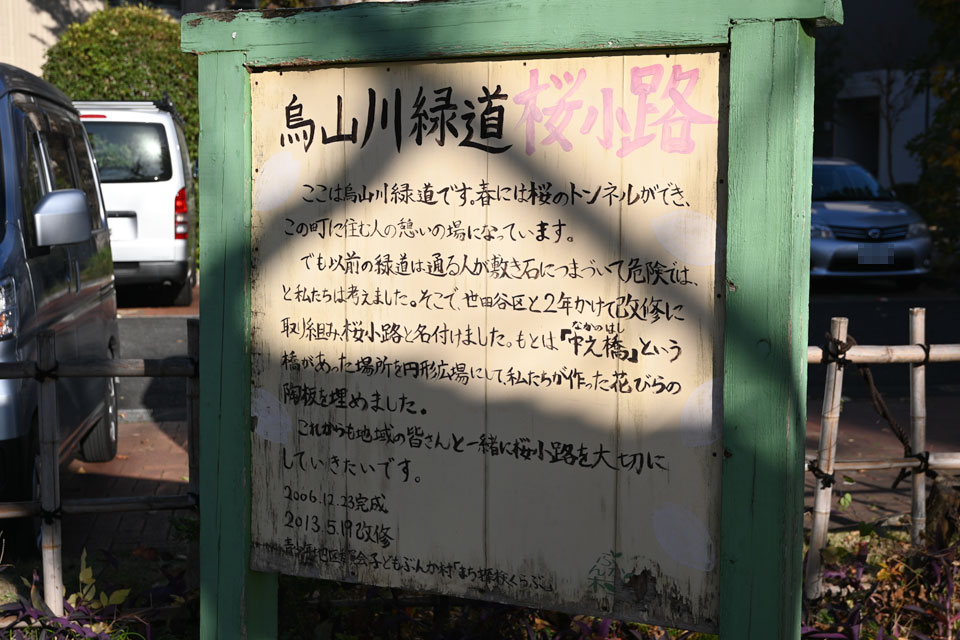 烏山川緑道桜小路
ここは烏山川緑道です。春には桜のトンネルができ、
この町に住む人の憩いの場になっています。
でも以前の緑道は通る人が敷き石につまづいて危険では、
と私たちは考えました。そこで、世田谷区と2年かけて改修に
取り組み、桜小路と名付けました。もとは「中之橋」という
なかのはし
橋があった場所を円形広場にして、私たちが作った花びらの
陶板を埋めました。
これからも地域の皆さんと一緒に桜小路を大切に
していきたいです。
2006.12.23完成
2013.5.19改修
子どもぶんか村「まち探検くらぶ」